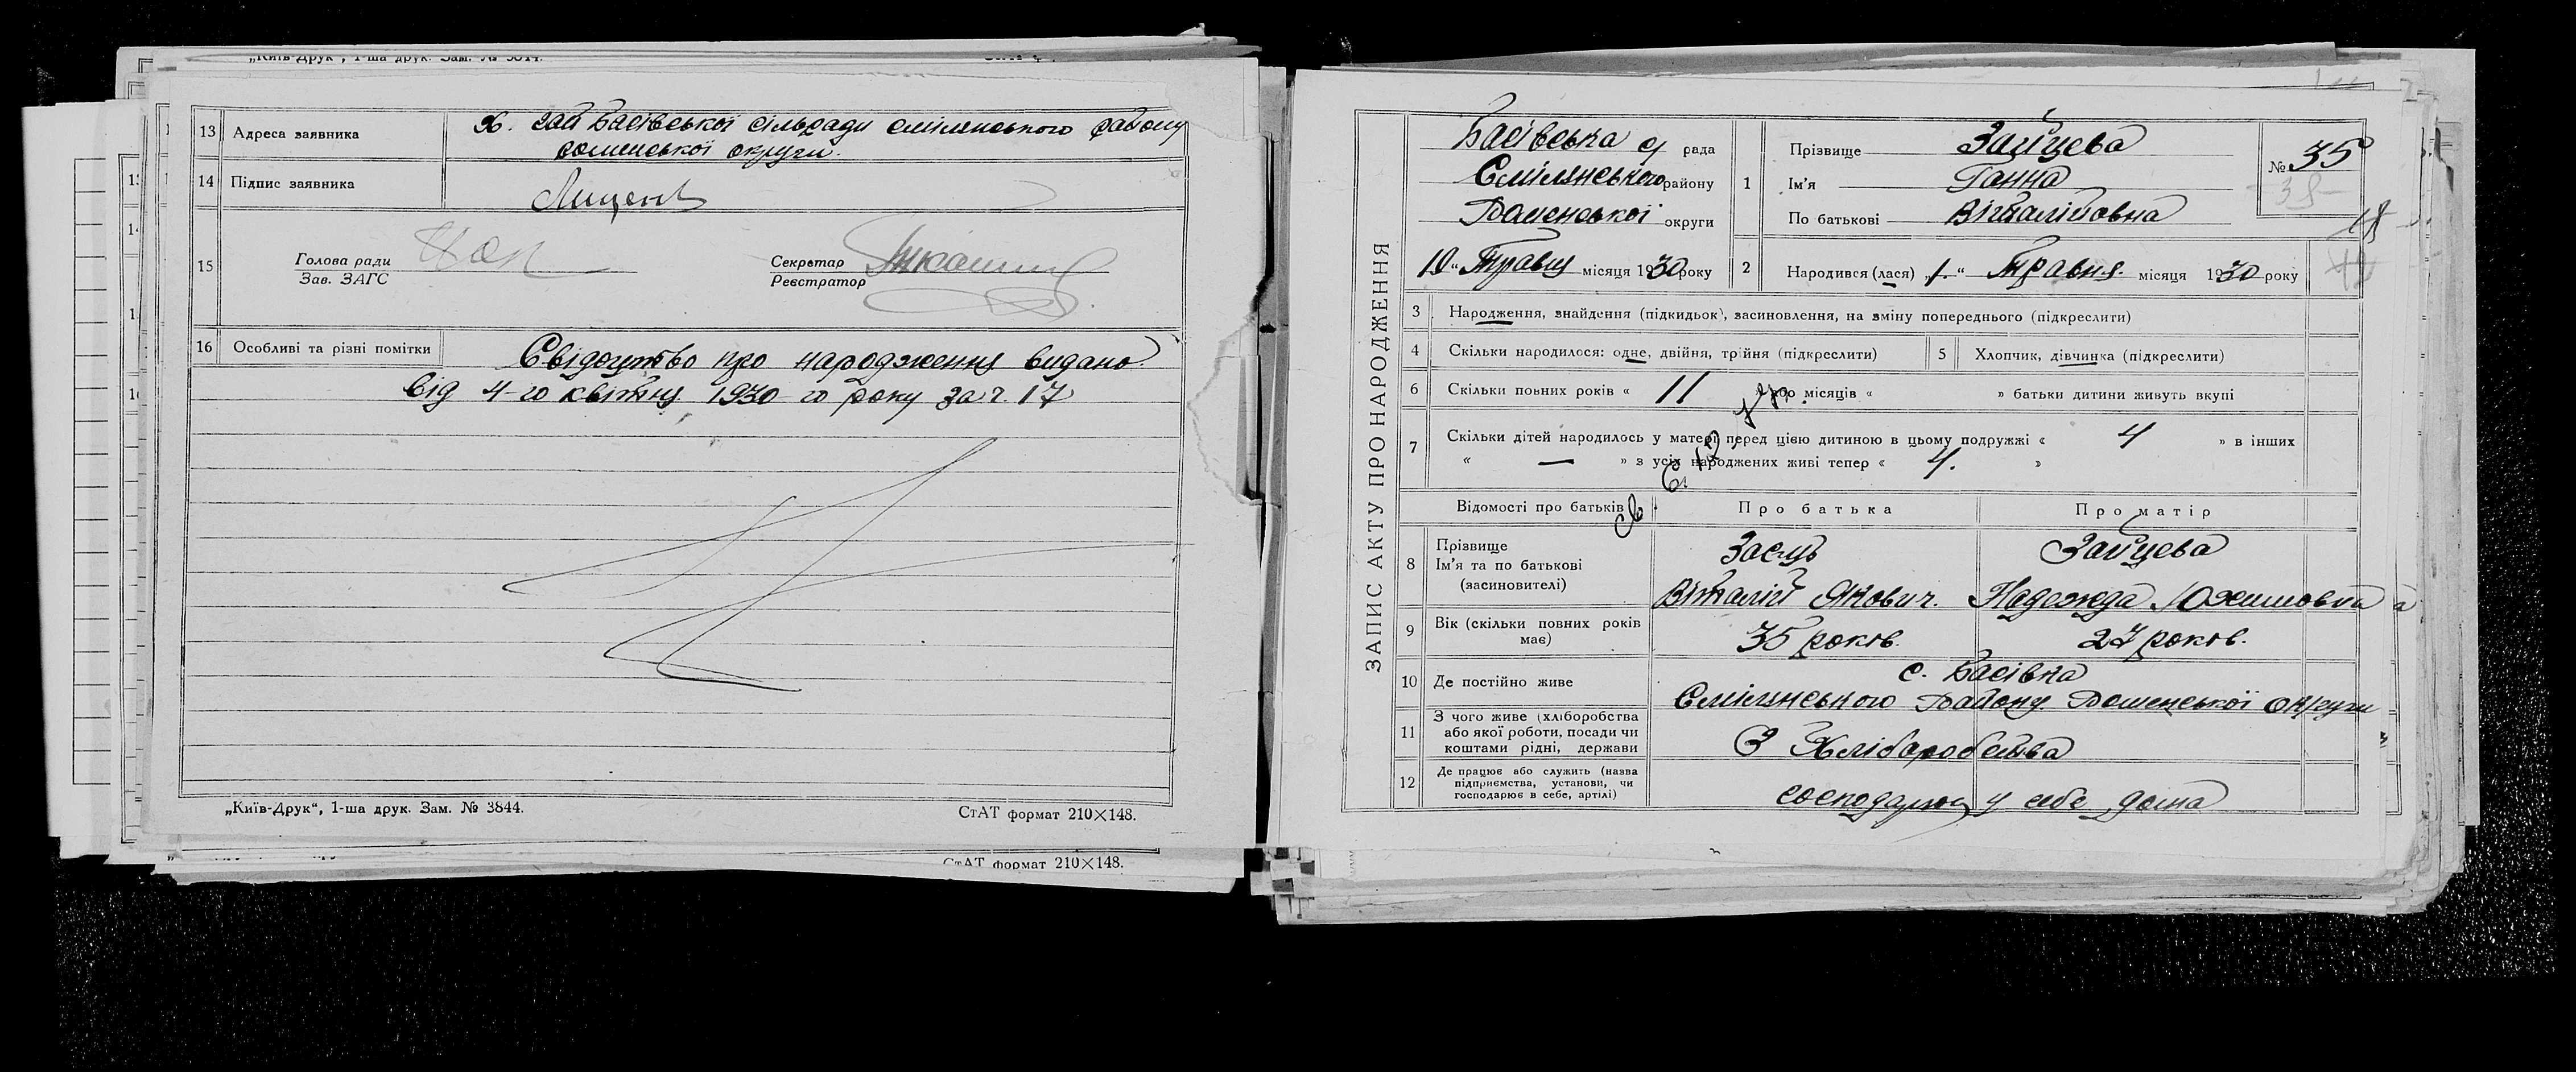 „Київ-Друк“, 1-ша друк. Зам. № 3844.
13 Адреса заявника Х. Гай Басівської сільради Смілянського району
Роменської округи.
14 Підпис заявника
15 Голова ради
Зав. ЗАГС
Секретар
Реєстратор
16 Особливі та різні помітки Свідоцтво про народження видано
від 4-го квітня 1930-го року за ч. 17
„Київ-Друк“, 1-ша друк. Зам. № 3844.
СтАТ формат 210×148.
СтАТ формат 210×148.
ЗАПИС АКТУ ПРО НАРОДЖЕННЯ
Басівська с/ рада
Смілянського району
Роменської округи
10 “ Травня місяця 1930 року
1 Прізвище Зайцева
Ім'я Ганна
По батькові Віталійовна
№ 35
35
2 Народився (лася) „1“ Травня місяця 1930 року
3 Народження, знайдення (підкидьок), засиновлення, на зміну попереднього (підкреслити)
4 Скільки народилося: одне, двійня, трійня (підкреслити)
5 Хлопчик, дівчинка (підкреслити)
6 Скільки повних років « 11 » або місяців « » батьки дитини живуть вкупі
7 Скільки дітей народилось у матері перед цією дитиною в цьому подружжі « 4 » в інших
« — » з усіх народжених живі тепер « 4. »
Відомості про батьків Про батька Про матір
8 Прізвище
Ім'я та по батькові
(засиновителі)
Заєць
Віталій Якович.
Зайцева
Надежда Юхимовна
9 Вік (скільки повних років має) 35 років. 27 років.
10 Де постійно живе с. Басівка
Смілянського Району Роменської округи
11 З чого живе (хліборобства
або якої роботи, посади чи
коштами рідні, держави
З Хліборобства
12 Де працює або служить (назва
підприємства, установи, чи
господарює в себе, артілі)
господарює у себе дома